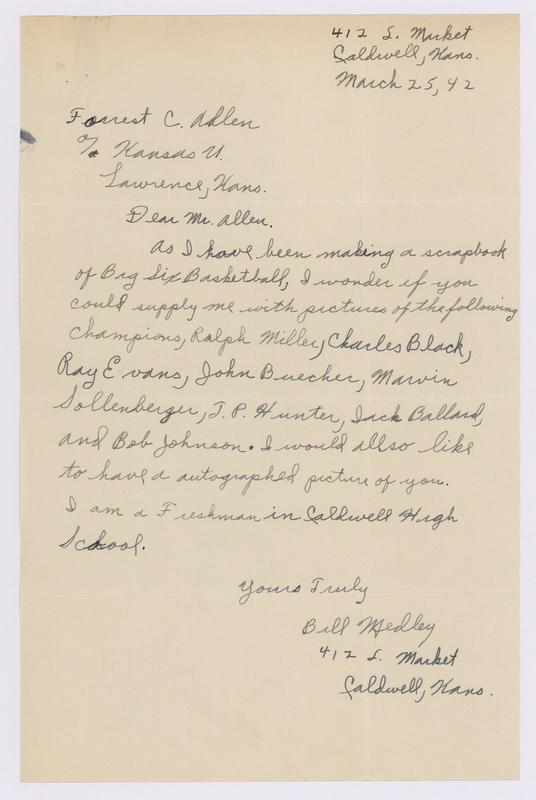 412 S. Market
Caldwell, Kans.
March 25, 42
Forrest C. Allen
c/o Kansas U.
Lawrence, Kans.
Dear Mr. Allen.
As I have been making a scrapbook
of Big Six Basketball, I wonder if you
could supply me with pictures of the following
champions, Ralph Miller, Charles Black,
Ray Evans, John Buecher, Marvin
Sollenberger, T. P. Hunter, Jack Ballard,
and Bob Johnson. I would allso like
to have a autographed picture of you.
I am a Freshman in Caldwell High
School.
Yours Truly
Bill Medley
412 S. Market
Caldwell, Kans.